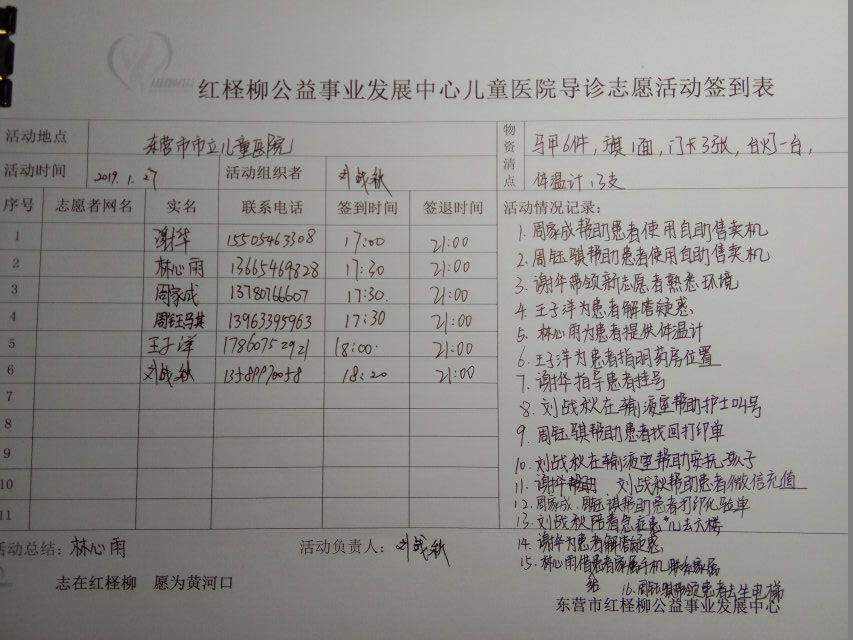 红柽柳公益事业发展中心儿童医院导诊志愿活动签到表
活动地点 东营市市立儿童医院 物资清点 马甲6件，旗1面，门卡3张，台灯一台，
活动时间 2019.1.27 活动组织者 刘战秋 体温计13支
序号 志愿者网名 实名 联系电话 签到时间 签退时间 活动情况记录：
1 谢华 15505463308 17:00 21:00
2 林心雨 13665469828 17:30 21:00
3 周家成 13780766607 17:30 21:00
4 周钰骐 13963395963 17:30 21:00
5 王子洋 17860752921 18:00 21:00
6 刘战秋 13589970058 18:20 21:00
7
8
9
10
11
1. 周家成帮助患者使用自助售卖机
2. 周钰骐帮助患者使用自助售卖机
3. 谢华带领新志愿者熟悉环境
4. 王子洋为患者解答疑惑
5. 林心雨为患者提供体温计
6. 王子洋为患者指明药房位置
7. 谢华指导患者挂号
8. 刘战秋在输液室帮助护士叫号
9. 周钰骐帮助患者找回打印单
10. 刘战秋在输液室帮助安抚孩子
11. 谢华帮助 刘战秋帮助患者微信充值
12. 周家成、周钰骐帮助患者打印化验单
13. 刘战秋陪着急症患儿去大楼
14. 谢华为患者解答疑惑
15. 林心雨借患者家属手机联系家属
16. 周钰骐带领患者去坐电梯
活动总结：林心雨 活动负责人：刘战秋
志在红柽柳 愿为黄河口
东营市红柽柳公益事业发展中心